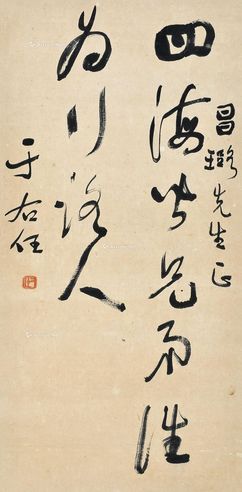 昌璐先生正
四海皆兄弟誰
為行路人
于右任